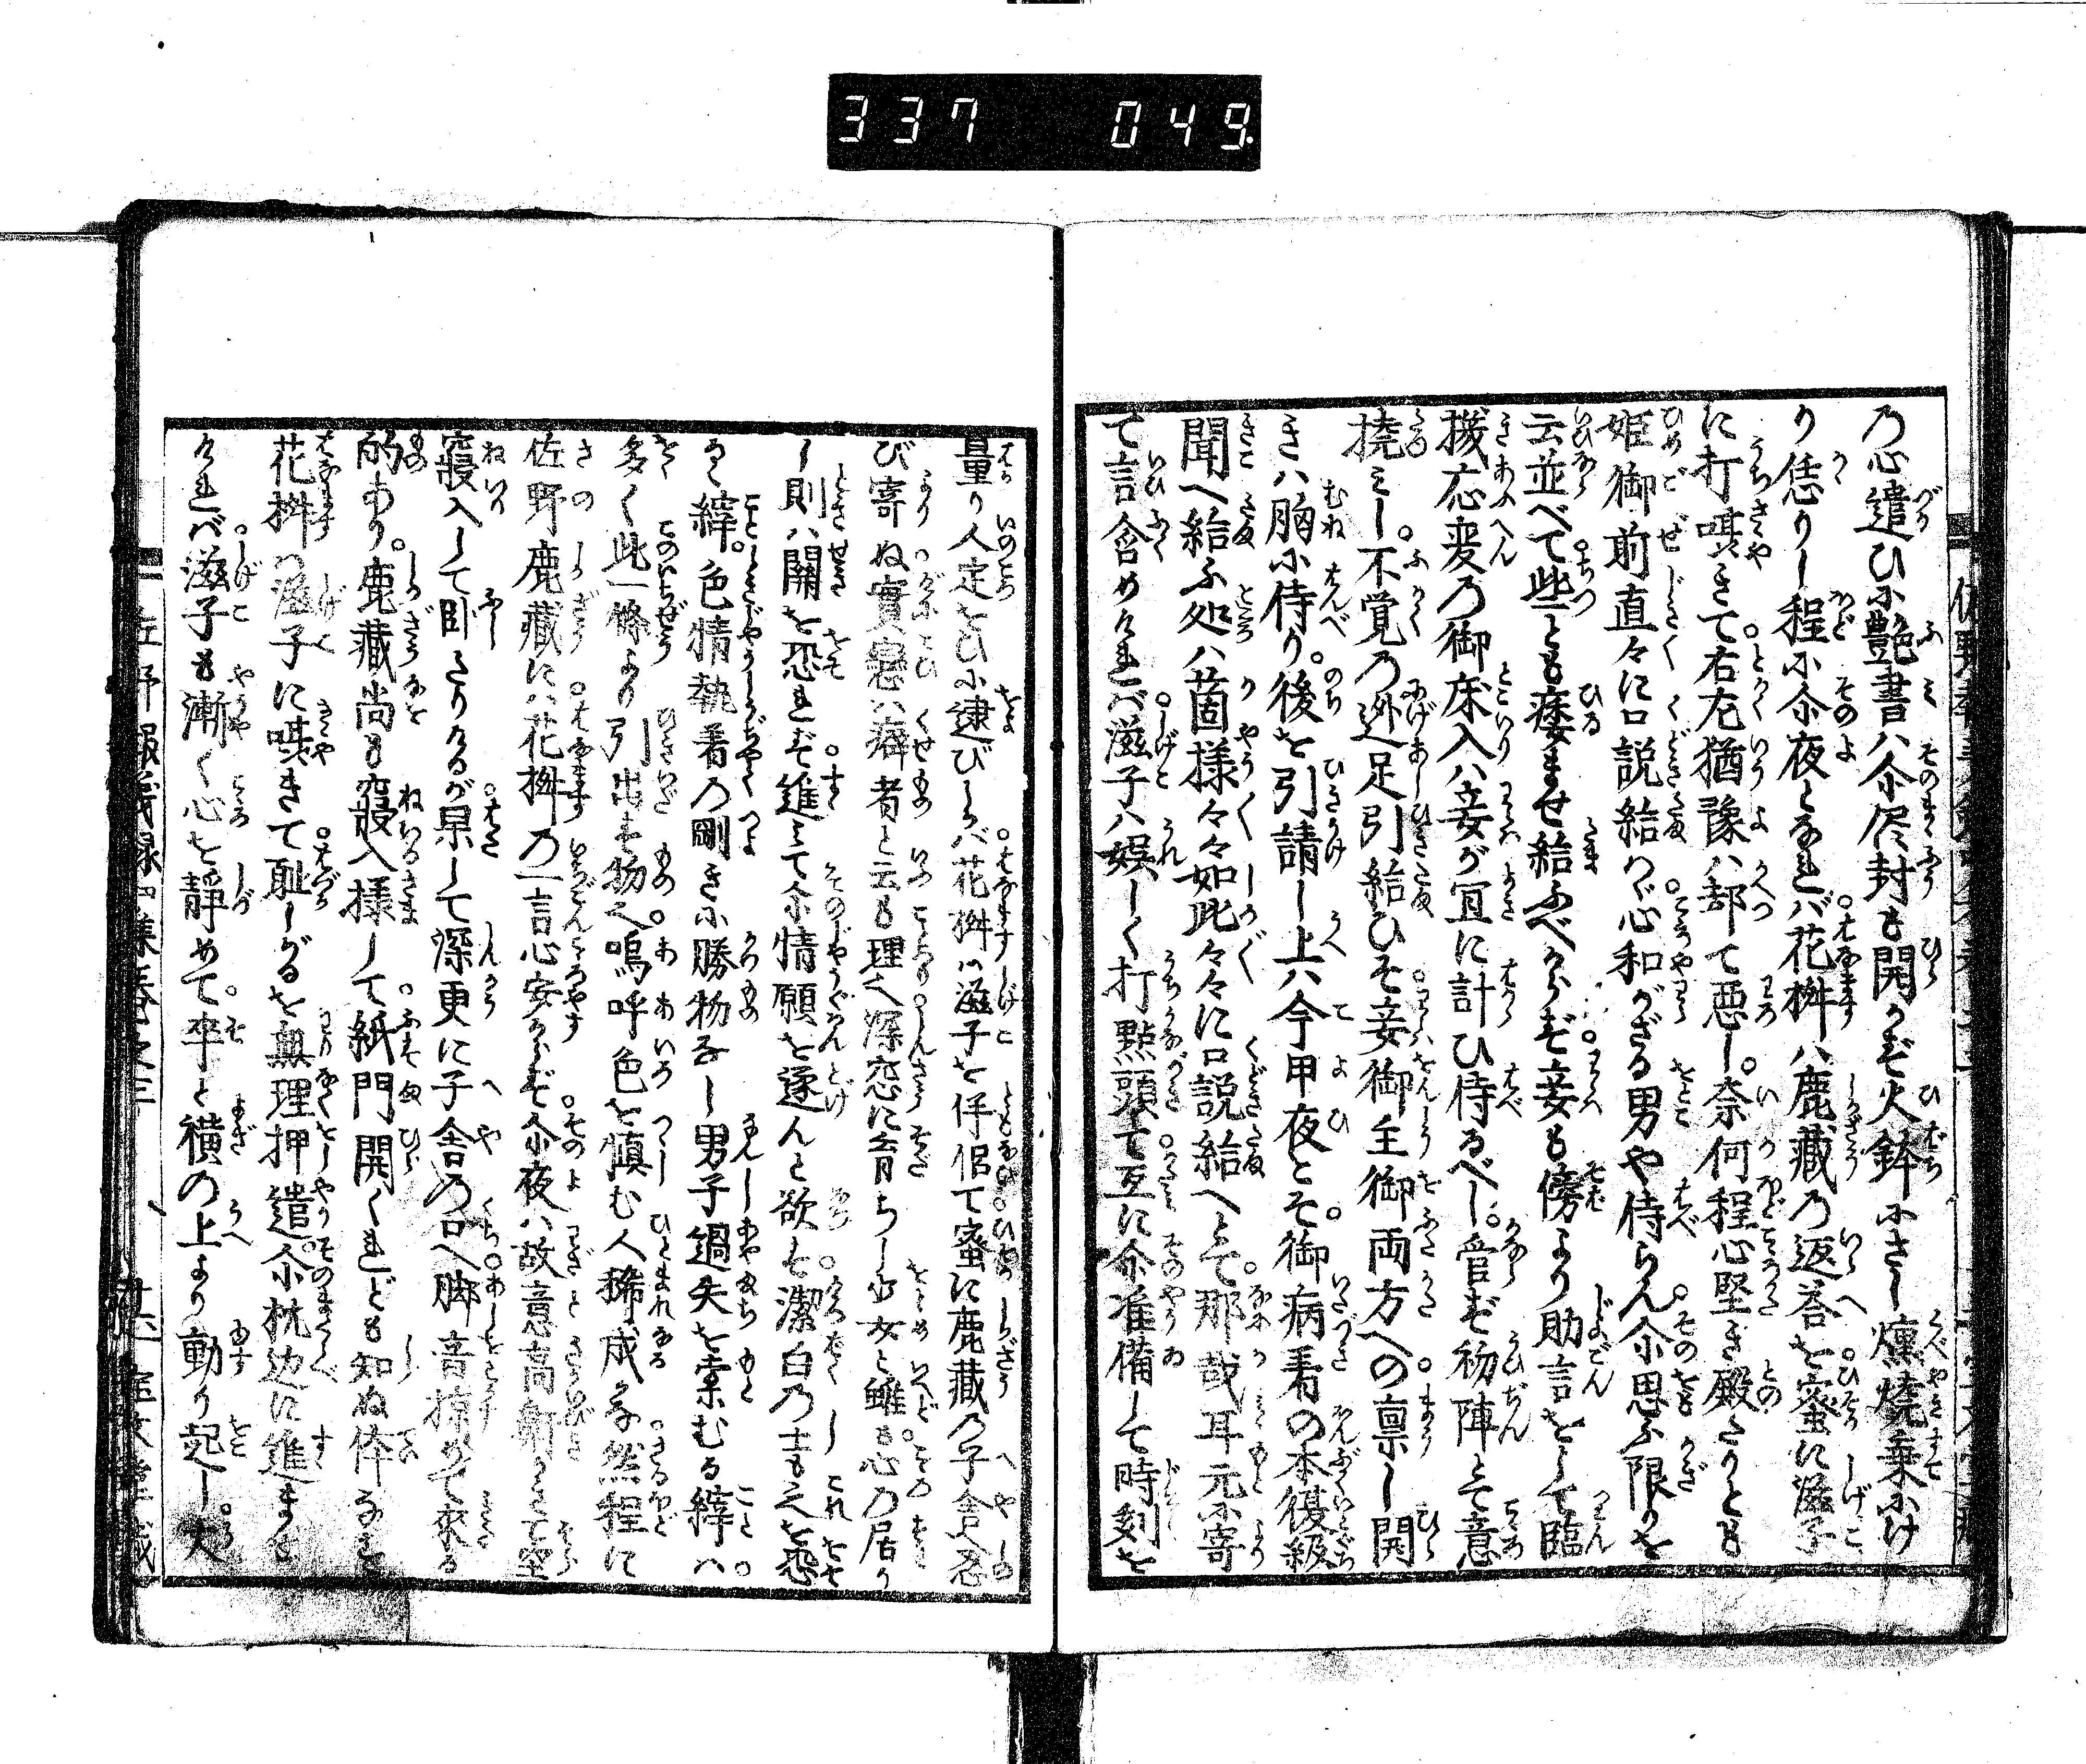 337 049.
乃心遣ひ小艶書ハ尒侭封も開かぞ火鉢小さし燻焼棄小け
り恁りし程小尒夜となれバ花桝ハ鹿藏乃返荅を蜜に滋子
に打𠵅きて右左猶豫ハ却て悪し。奈何程心堅き殿たりとも
姫御前直々に口説給つゞ心和がざる男や侍らん尒思ふ限りを
云並べて些とも痿ませ給ふべからぞ妾も傍より助言をして臨
機応変乃御床入ハ妾が冝に計ひ侍るべし。管ぞ初陣とて意
撓ミし。不覚乃迯足引給ひそ妾御主御両方への禀し開
きハ胸小侍り。後を引請し上ハ今甲夜とそ御病着の本復級
聞へ給ふ処ハ箇様々々如此々々に口説給へとて那哉耳元小寄
て言含めけれバ滋子ハ娯しく打點頭て互に尒准備して時刻を
量り人定をひ小逮びしらバ花桝ハ滋子を伴侶て蜜に鹿藏乃子舎へ忍
び寄ぬ實戀ハ癖者と云も理へ深窓に育ちし少女と雖も心の居り
し則ハ關を恐れぞ進ミて尒情願を遂んと欲も潔白乃士も之を恐
るく縡。色情執着乃剛き小勝物なし男子過失を索むる縡ハ
多く此一條より引出を物へ嗚呼色を慎む人稀成かな然程に
佐野鹿藏にハ花桝乃一言心安からぞ尒夜ハ故意高鼾かきて空
寝入して臥たりけるが果して深更に子舎乃口へ脚音掠めて來る
的あり。鹿藏尚も寝入様して紙門開くれども知ぬ侼なれを
花桝つ滋子に𠵅きて耻しがるを無理押遣尒枕辺に進まむ
けれバ滋子も漸く心を靜めて。卒と横の上より動り起し。大